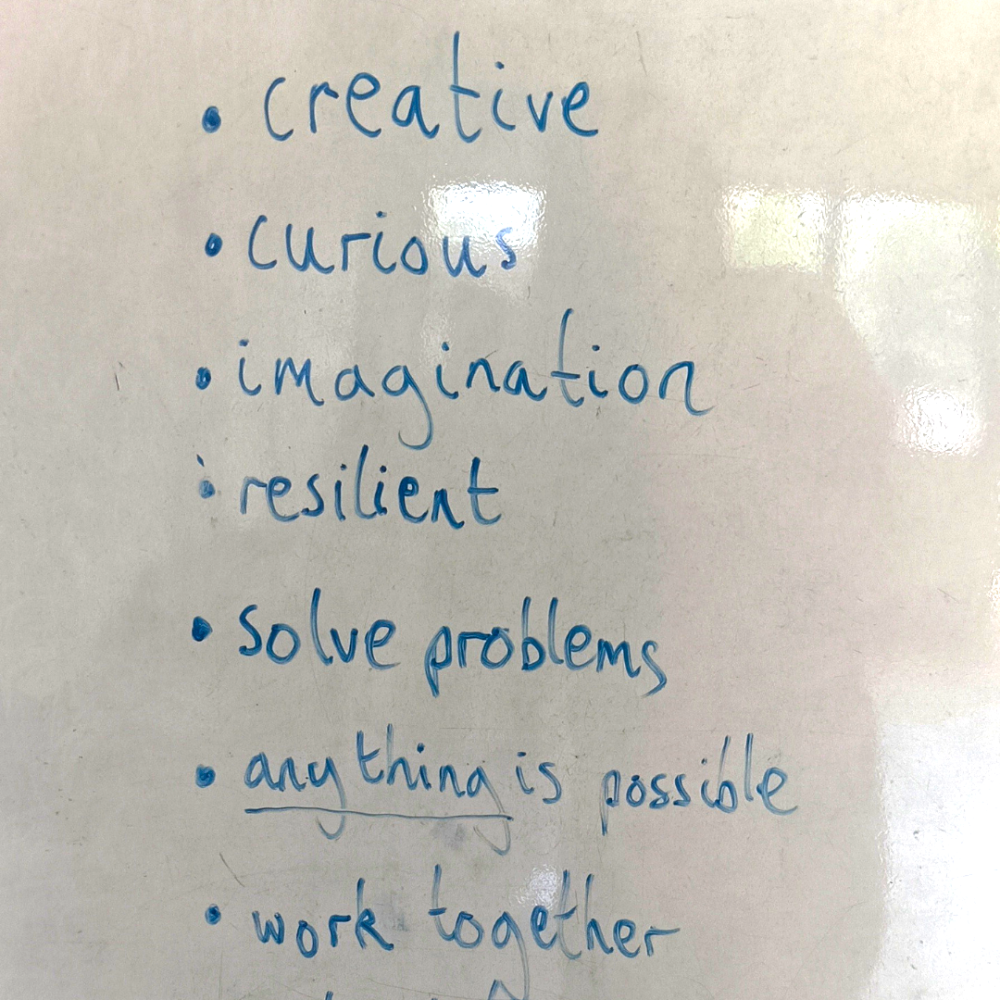 • creative
• curious
• imagination
• resilient
• solve problems
• anything is possible
• work together